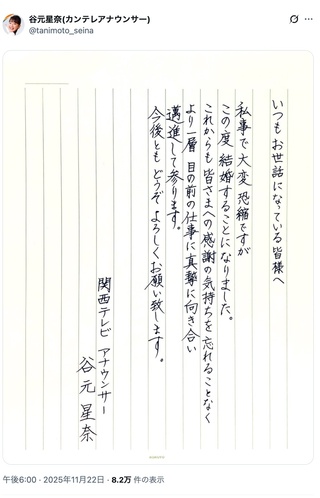 谷元星奈(カンテレアナウンサー)
@tanimoto_seina
いつもお世話になっている皆様へ
私事で大変恐縮ですが
この度 結婚することになりました。
これからも皆さまへの感謝の気持ちを忘れることなく
より一層 目の前の仕事に真摯に向き合い
邁進して参ります。
今後とも どうぞ よろしくお願い致します。
関西テレビ アナウンサー
谷元 星奈
午後6:00 · 2025年11月22日 · 8.2万 件の表示